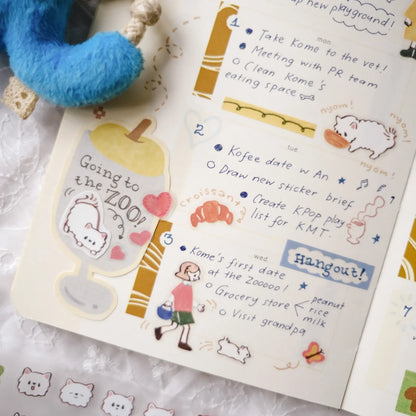 new playground!
1
mon
Take Kome to the vet!
Meeting with PR team
Clean Kome's
eating space
nyom!
nyom!
nyom!
2
tue
Kofee date w An
Draw new sticker brief
Create KPop play
list for KMT.
croissant
Going to
the ZOO!
3
wed
Kome's first date
at the ZOOOOO!
Hangout!
Grocery store
peanut
rice
milk
Visit grandpa